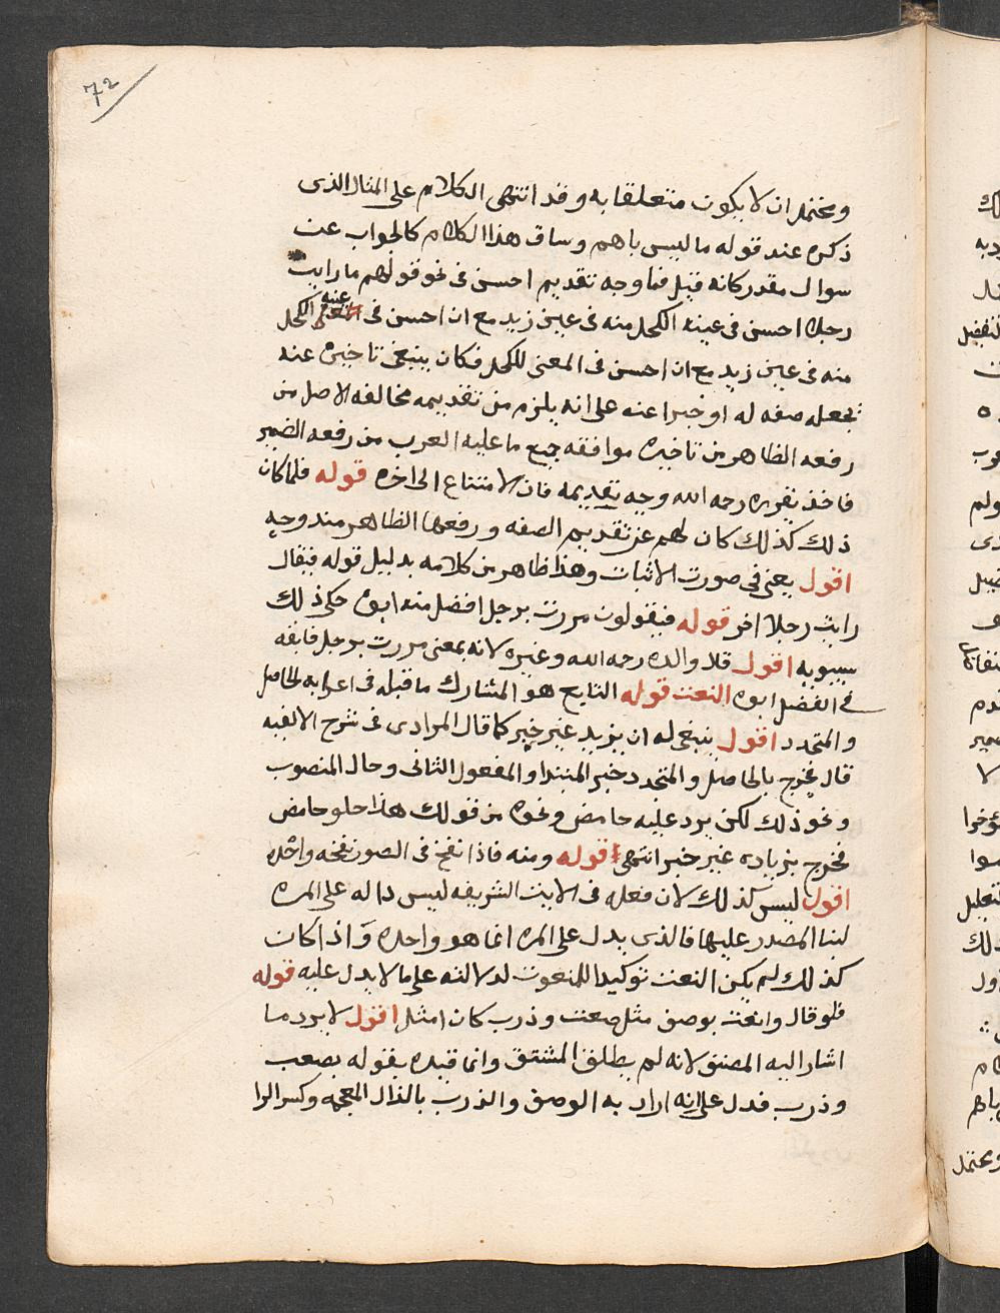 72
ويحتمل ان لا يكون متعلقا به وقد انتهى الكلام على المثال الذى
ذكره عند قوله ما ليس باهم وساق هذا الكلام كالجواب عن
سوال مقدر كانه قيل فما وجه تقديم احسن فى نحو قولهم ما رايت
رجلا احسن فى عينه الكحل منه فى عين زيد مع ان احسن فى عينه الكحل
منه فى عين زيد مع ان احسن فى المعنى للكحل فكان ينبغى تاخيره عنه
بجعله صفه له او خبرا عنه على انه يلزم من تقديمه مخالفه الاصل من
رفعه الظاهر من تاخيره موافقه جميع ما عليه العرب من رفعه الضمير
فاخذ يقرره رحمه الله وجه تقديمه فان الامتناع الى اخره قوله فلما كان
ذلك كذلك كان لهم عن تقديم الصفه ورفعها الظاهر مندوحه
اقول يعنى فى صورت الاثبات وهذا ظاهر من كلامه بدليل قوله فيقال
رايت رجلا اخر قوله فيقولون مررت برجل افضل منه ابوه حكى ذلك
سيبويه اقول قلا والده رحمه الله وغيره لانه بمعنى مررت برجل فايقه
فى الفضل ابوه النعت قوله التابع هو المشارك ما قبله فى اعرابه الحاصل
والمتجدد اقول ينبغى له ان يزيد غير خبر كما قال المرادى فى شرح الالفيه
قال يخرج بالحاصل والمتجدد خبر المبتدا والمفعول الثانى وحال المنصوب
ونحو ذلك لكن يرد عليه حامض ونحوه من قولك هذا حلو حامض
فخرج بزياده غير خبر انتهى قوله ومنه فاذا نفخ فى الصور نفخه واحده
اقول ليس كذلك لان فعله فى الايت الشريفه ليس داله على المره
لبنا المصدر عليها فالذى يدل على المره انما هو واحده واذا كان
كذلك لم يكن النعت توكيدا للمنعوت لدلالته على ما لا يدل عليه قوله
فلو قال وانعت بوصف مثل صعب وذرب كان امثل اقول لا يرد ما
اشار اليه المصنف لانه لم يطلق المشتق وانما قيده بقوله بصعب
وذرب فدل على انه اراد به الوصف والذرب بالذال المعجمه وكسر الرا